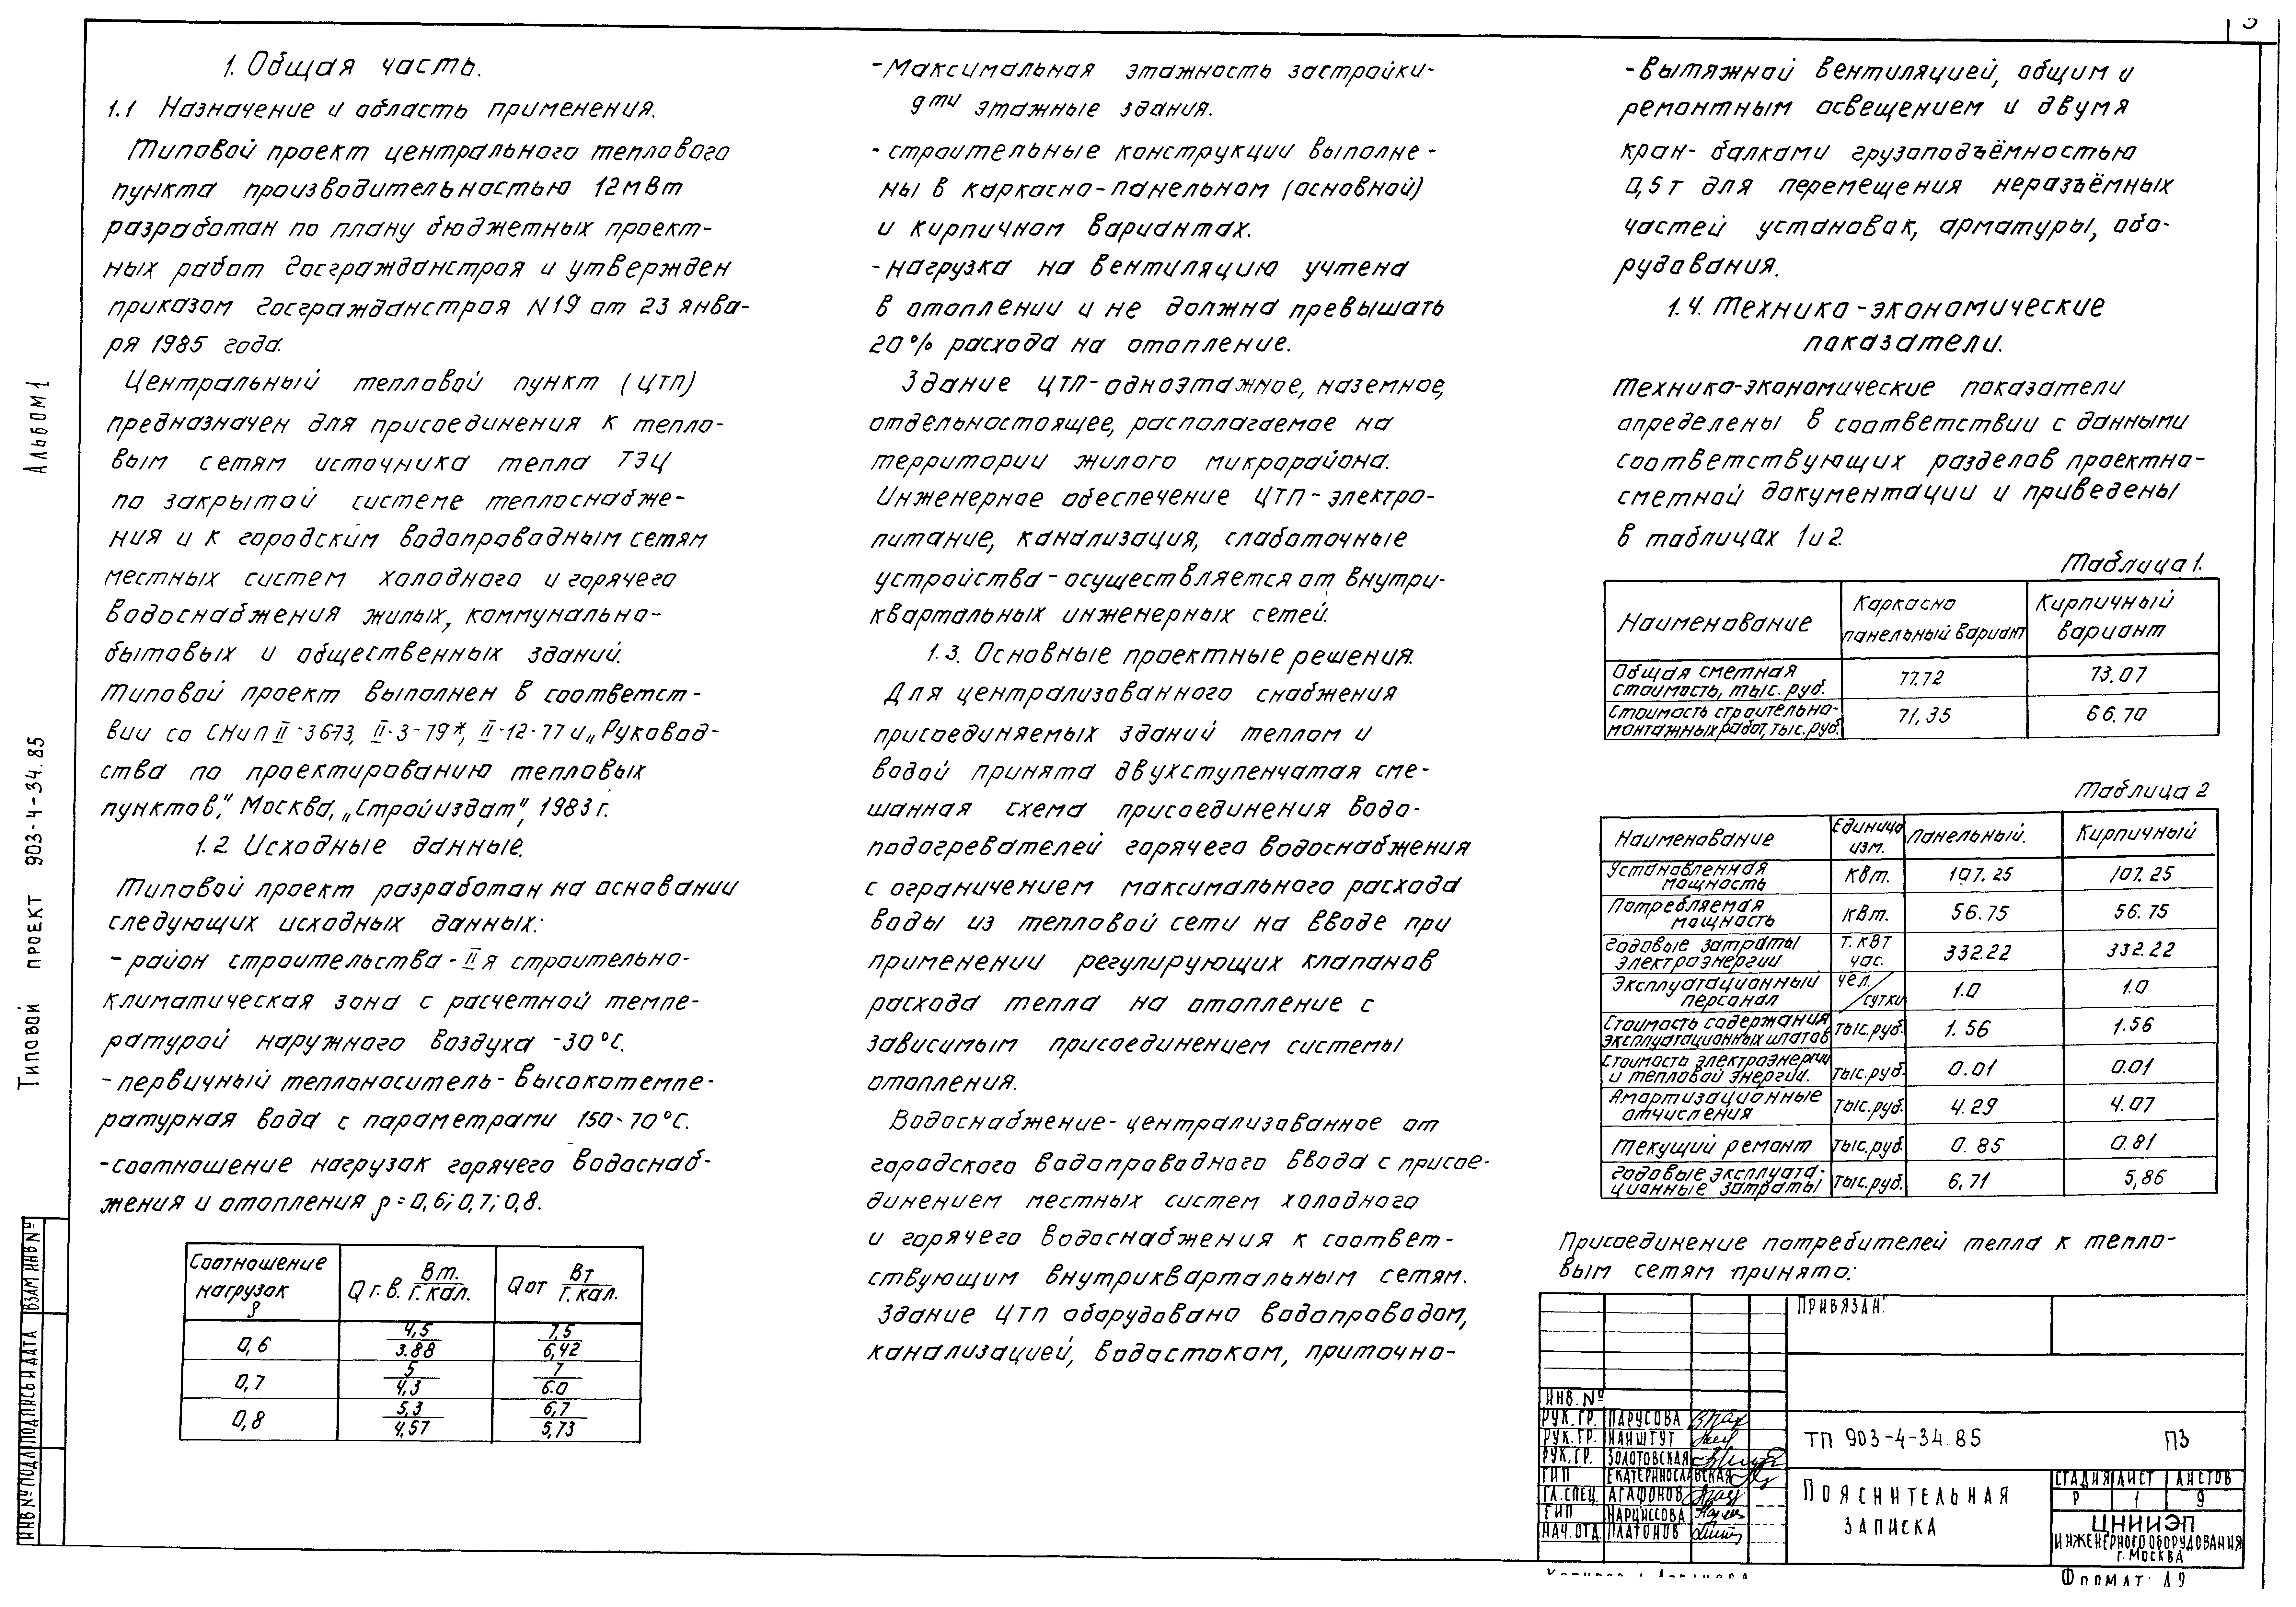 3
1. Общая часть.
1.1 Назначение и область применения.
Типовой проект центрального теплового
пункта производительностью 12мВт
разработан по плану бюджетных проект-
ных работ Госгражданстроя и утвержден
приказом Госгражданстроя N19 от 23 янва-
ря 1985 года.
Центральный тепловой пункт (ЦТП)
предназначен для присоединения к тепло-
вым сетям источника тепла ТЭЦ
по закрытой системе теплоснабже-
ния и к городским водопроводным сетям
местных систем холодного и горячего
водоснабжения жилых, коммунально-
бытовых и общественных зданий.
Типовой проект выполнен в соответст-
вии со СНиП II-3673, II-3-79*, II-12-77 и „Руковод-
ства по проектированию тепловых
пунктов", Москва, „Стройиздат", 1983г.
1.2. Исходные данные.
Типовой проект разработан на основании
следующих исходных данных:
- район строительства - II я строительно-
климатическая зона с расчетной темпе-
ратурой наружного воздуха -30°С.
- первичный теплоноситель - высокотемпе-
ратурная вода с параметрами 150-70°С.
- соотношение нагрузок горячего водоснаб-
жения и отопления ρ = 0,6; 0,7; 0,8.
Соотношение нагрузок ρ Q г.в. Вт./Г.кал. Q от Вт/Г.кал.
0,6 4,5/3.88 7,5/6,42
0,7 5/4,3 7/6.0
0,8 5,3/4,57 6,7/5,73
- Максимальная этажность застройки-
9ти этажные здания.
- строительные конструкции выполне-
ны в каркасно-панельном (основной)
и кирпичном вариантах.
- нагрузка на вентиляцию учтена
в отоплении и не должна превышать
20% расхода на отопление.
Здание ЦТП - одноэтажное, наземное,
отдельностоящее, располагаемое на
территории жилого микрорайона.
Инженерное обеспечение ЦТП - электро-
питание, канализация, слаботочные
устройства - осуществляется от внутри-
квартальных инженерных сетей.
1.3. Основные проектные решения.
Для централизованного снабжения
присоединяемых зданий теплом и
водой принята двухступенчатая сме-
шанная схема присоединения водо-
подогревателей горячего водоснабжения
с ограничением максимального расхода
воды из тепловой сети на вводе при
применении регулирующих клапанов
расхода тепла на отопление с
зависимым присоединением системы
отопления.
Водоснабжение - централизованное от
городского водопроводного ввода с присое-
динением местных систем холодного
и горячего водоснабжения к соответ-
ствующим внутриквартальным сетям.
Здание ЦТП оборудовано водопроводом,
канализацией, водостоком, приточно-
- вытяжной вентиляцией, общим и
ремонтным освещением и двумя
кран-балками грузоподъёмностью
0,5т для перемещения неразъёмных
частей установок, арматуры, обо-
рудования.
1.4. Технико-экономические
показатели.
Технико-экономические показатели
определены в соответствии с данными
соответствующих разделов проектно-
сметной документации и приведены
в таблицах 1 и 2.
Таблица 1.
Наименование Каркасно панельный вариант Кирпичный вариант
Общая сметная стоимость, тыс. руб. 77.72 73.07
Стоимость строительно-монтажных работ, тыс. руб. 71,35 66.70
Таблица 2
Наименование Единица изм. Панельный. Кирпичный
Установленная мощность Квт. 107.25 107.25
Потребляемая мощность квт. 56.75 56.75
Годовые затраты электроэнергии т. квт час. 332.22 332.22
Эксплуатационный персонал чел./сутки 1.0 1.0
Стоимость содержания эксплуатационных штатов тыс.руб. 1.56 1.56
Стоимость электроэнергии и тепловой энергии. тыс.руб. 0.01 0.01
Амортизационные отчисления тыс.руб. 4.29 4.07
Текущий ремонт тыс.руб. 0.85 0.81
Годовые эксплуата-ционные затраты тыс.руб. 6,71 5,86
Присоединение потребителей тепла к тепло-
вым сетям принято:
Привязан:
ИНВ. №
РУК.ГР. ПАРУСОВА
РУК.ГР. НАЙШТУТ
РУК.ГР. ЗОЛОТОВСКАЯ
ГИП ЕКАТЕРИНОСЛАВСКАЯ
ГЛ.СПЕЦ АГАФОНОВ
ГИП НАРЦИССОВА
НАЧ.ОТД ПЛАТОНОВ
ТП 903-4-34.85 ПЗ
Пояснительная
записка
СТАДИЯ ЛИСТ ЛИСТОВ
Р 1 9
ЦНИИЭП
ИНЖЕНЕРНОГО ОБОРУДОВАНИЯ
г. МОСКВА
Формат: А2
Альбом 1
Типовой проект 903-4-34.85
ВЗАМ ИНВ №
ПОДПИСЬ И ДАТА
ИНВ № ПОДЛ